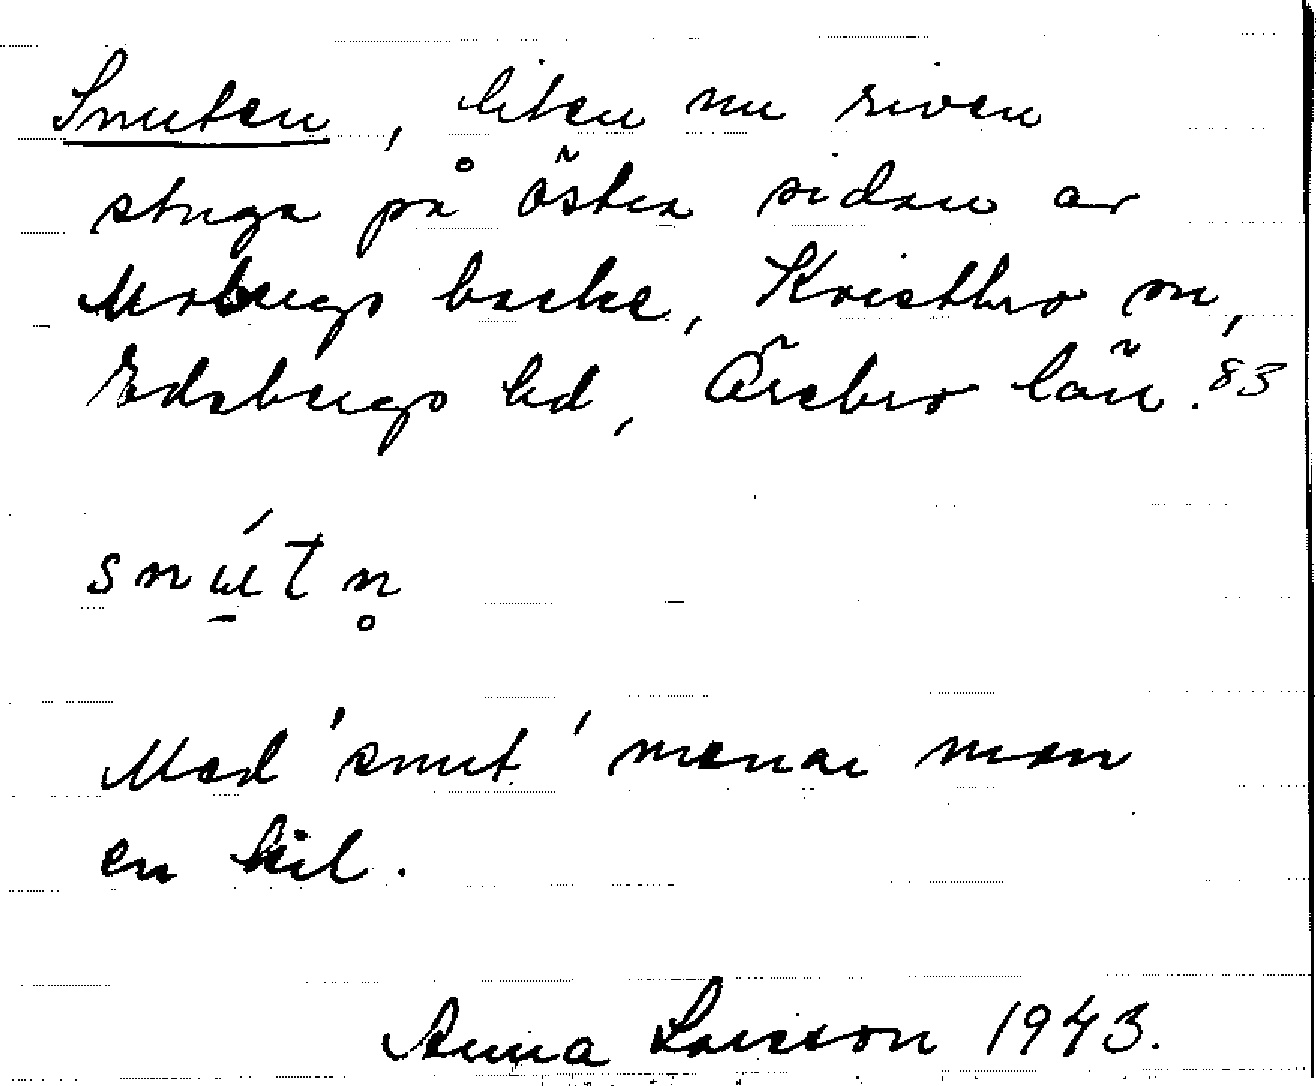 Snuten, liten nu riven
stuga på östra sidan av
Mobergs backe, Kvistbro sn,
Edsbergs hd, Örebro län. 83
snɯ̱́tn̥
Med 'snut' menar man
en kil.
Anna Larsson 1943.